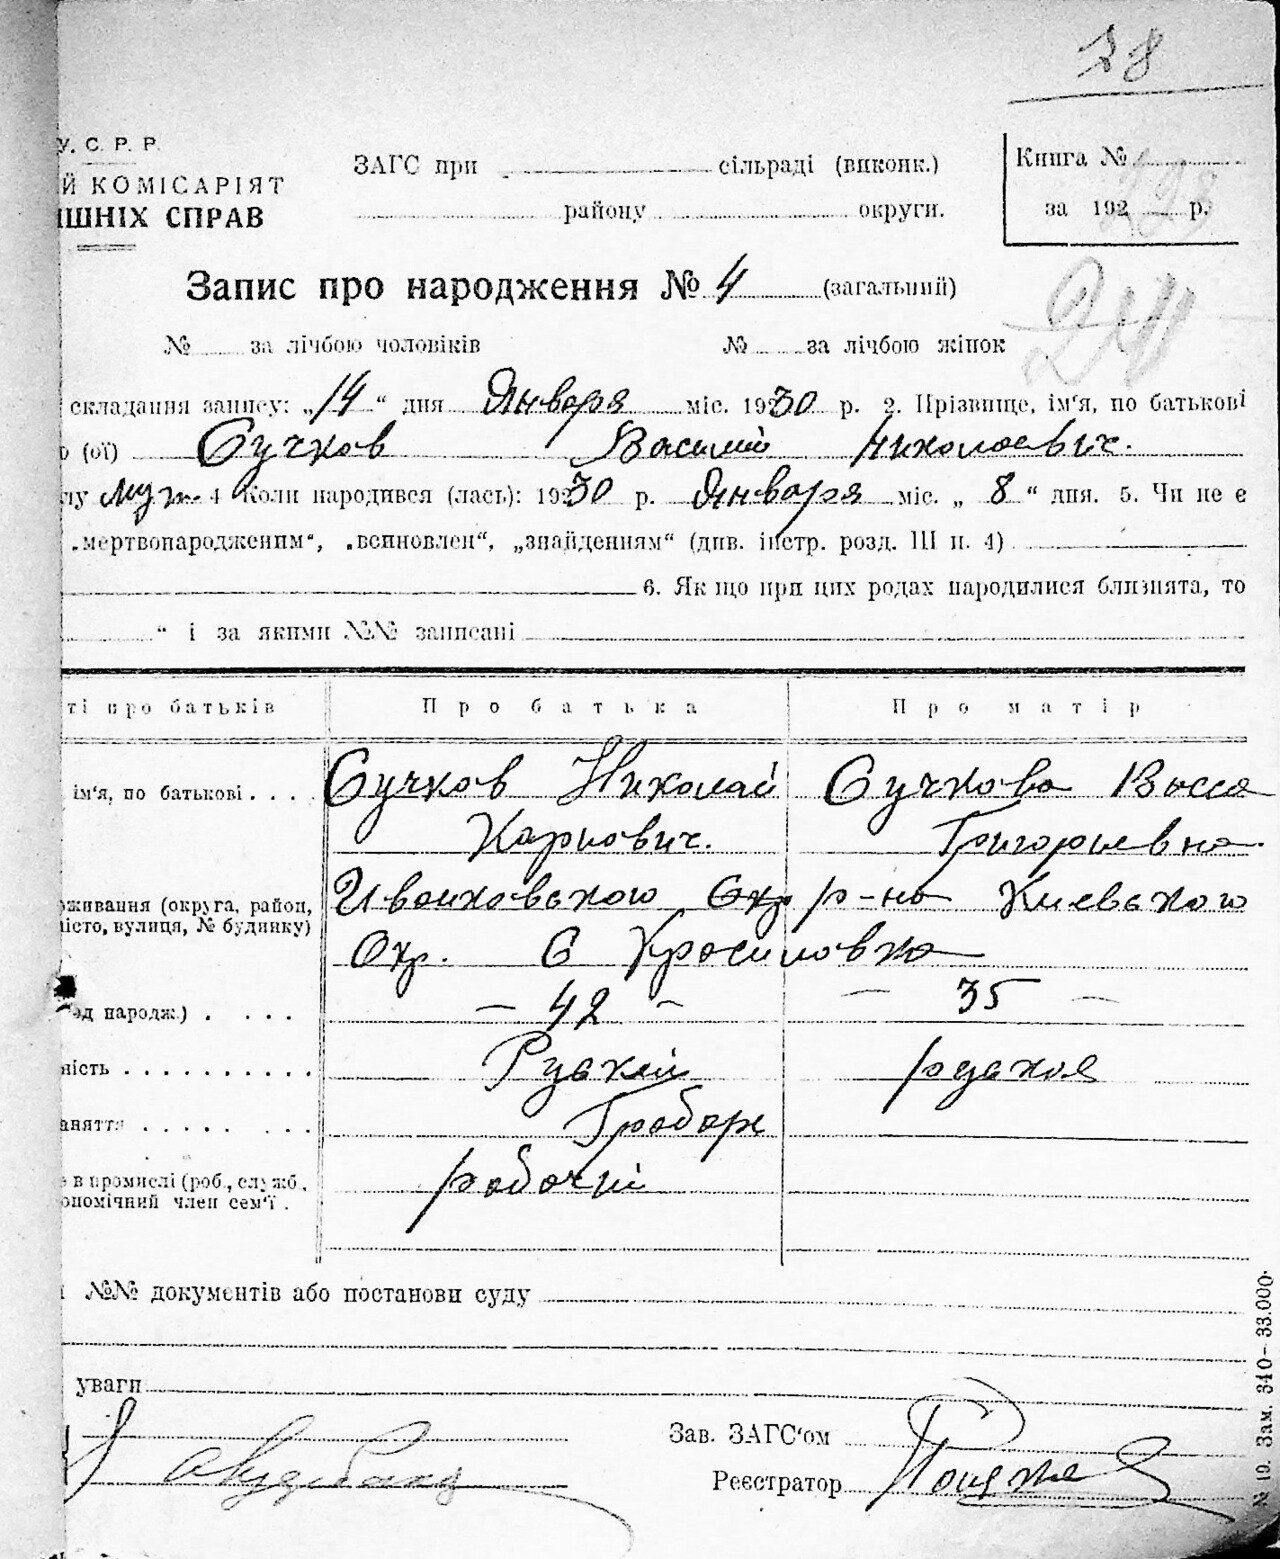 28
У. С. Р. Р.
Й КОМІСАРІЯТ
ІШНІХ СПРАВ
ЗАГС при сільраді (виконк.)
району округи.
Книга №
за 192 р.
Запис про народження № 4 (загальний)
№ за лічбою чоловіків № за лічбою жінок
складання запису: „14“ дня Января міс. 1930 р. 2. Прізвище, ім'я, по батькові
о (ої) Сучков Василий Николаевич.
лу муж. 4 Коли народився (лась): 1930 р. Января міс. „8“ дня. 5. Чи не є
„мертвонародженим“, „всиновлен“, „знайденням“ (див. інстр. розд. III п. 4)
6. Як що при цих родах народилися близнята, то
“ і за якими №№ записані
ті про батьків Про батька Про матір
ім'я, по батькові . . . . Сучков Николай Сучкова Васса
Карпович. Григорьевна.
оживання (округа, район, Иванковского Окр р-на Киевского
місто, вулиця, № будинку) Окр. С Красиловка
од народж.) . . . . — 42 — — 35 —
ність . . . . . . . . . . Руский руская
аняття . . . . . . . . Грабарь
е в промислі (роб., служб. рабочий
ономічний член сем'ї .
№№ документів або постанови суду
уваги
Зав. ЗАГС'ом
Реєстратор
№ 19. Зам. 340—33.000.